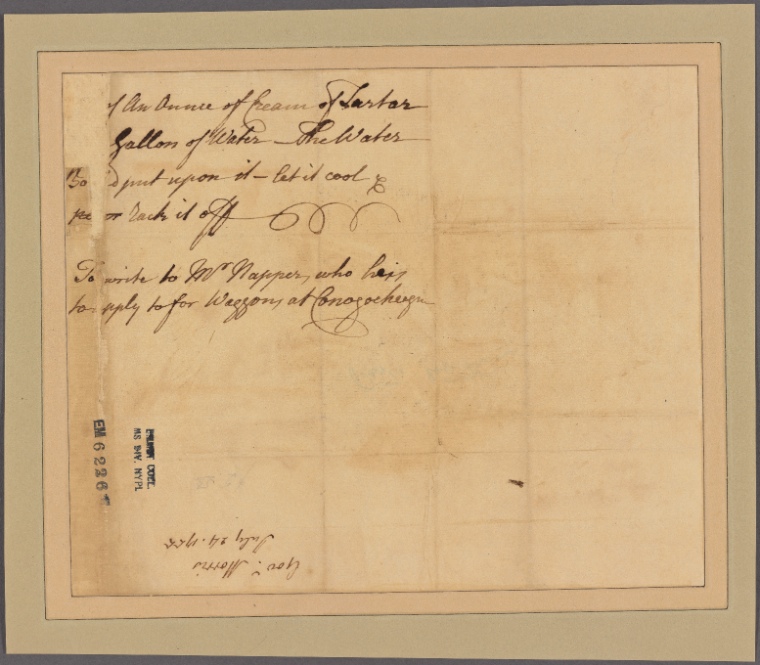 of An Ounce of Cream of Tartar
Gallon of Water – The Water
put upon it – let it cool &
or Rack it off
To write to Mr Napper, who he is
to apply to for Waggons at Conogocheegue
EM 6226
EMMET COLL.
MS DIV. NYPL
Govr. Morris
July 24. 1755